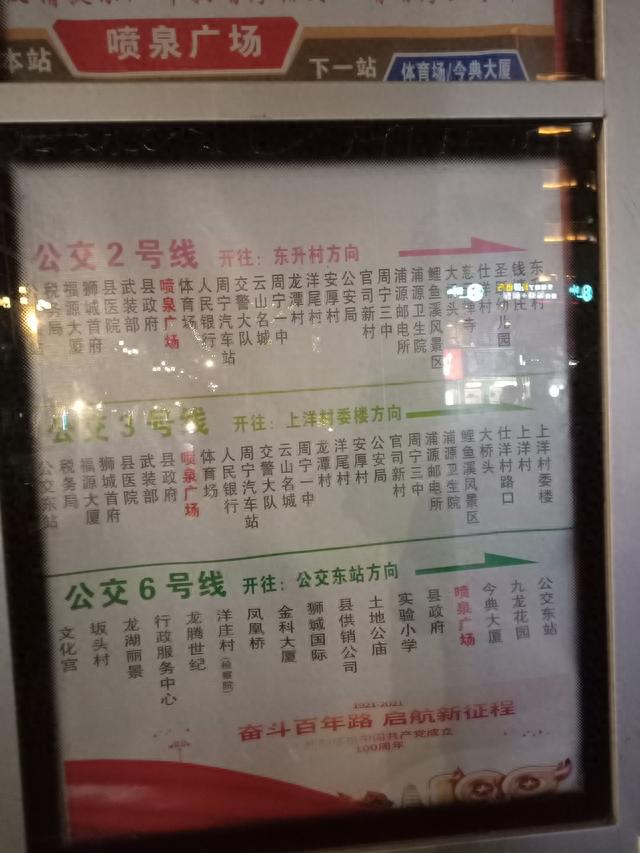 本站
喷泉广场
下一站
体育场/今典大厦
公交2号线 开往：东升村方向
税务局
福源大厦
狮城首府
县医院
武装部
县政府
喷泉广场
体育场
人民银行
周宁汽车站
交警大队
云山名城
周宁一中
龙潭村
洋尾村
安厚村
公安局
官司新村
周宁三中
浦源邮电所
浦源卫生院
鲤鱼溪风景区
仕洋村
公交3号线 开往：上洋村委楼方向
公交东站
税务局
福源大厦
狮城首府
县医院
武装部
县政府
喷泉广场
体育场
人民银行
周宁汽车站
交警大队
云山名城
周宁一中
龙潭村
洋尾村
安厚村
公安局
官司新村
周宁三中
浦源邮电所
浦源卫生院
鲤鱼溪风景区
大桥头
仕洋村路口
上洋村
上洋村委楼
公交6号线 开往：公交东站方向
文化宫
坂头村
龙湖丽景
行政服务中心
龙腾世纪
洋庄村（检察院）
凤凰桥
金科大厦
狮城国际
县供销公司
土地公庙
实验小学
县政府
喷泉广场
今典大厦
九龙花园
公交东站
1921-2021
奋斗百年路 启航新征程
中国共产党成立
100周年